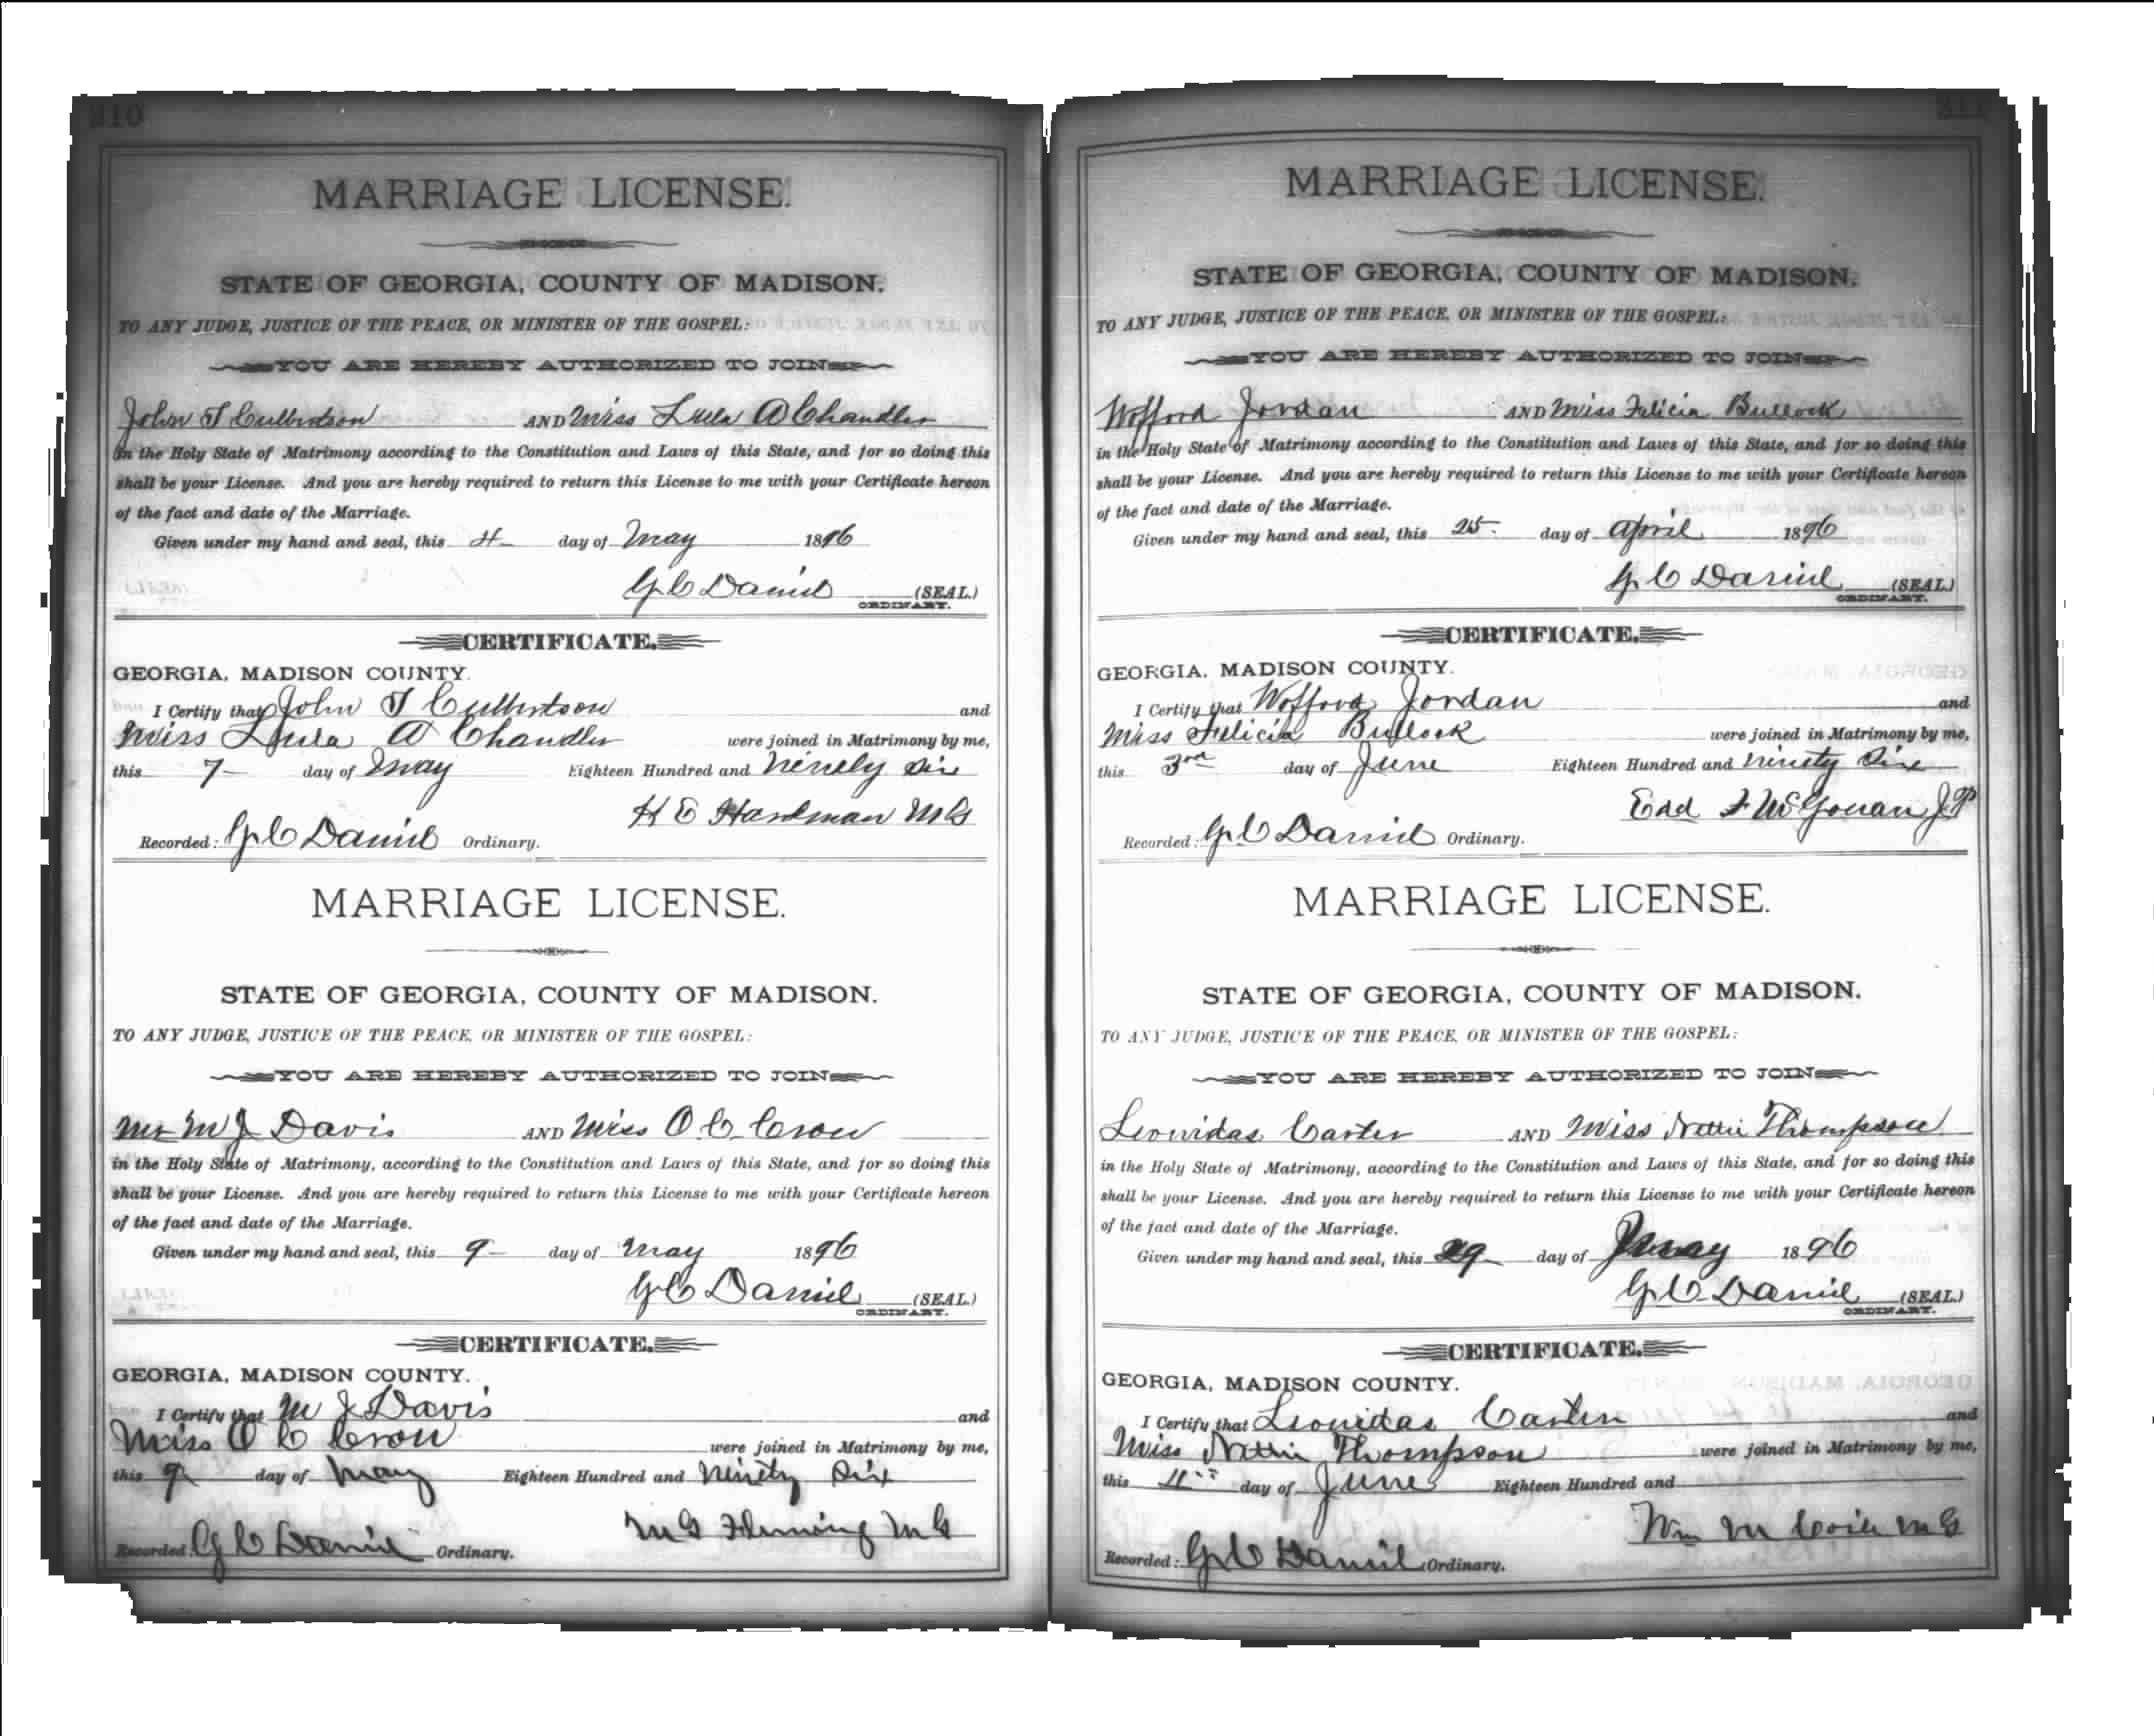 310
MARRIAGE LICENSE.
STATE OF GEORGIA, COUNTY OF MADISON.
TO ANY JUDGE, JUSTICE OF THE PEACE, OR MINISTER OF THE GOSPEL:
YOU ARE HEREBY AUTHORIZED TO JOIN
John T Culbertson AND Miss Lula A Chandler
in the Holy State of Matrimony according to the Constitution and Laws of this State, and for so doing this
shall be your License. And you are hereby required to return this License to me with your Certificate hereon
of the fact and date of the Marriage.
Given under my hand and seal, this 4 day of May 1896
G C Daniel (SEAL.)
ORDINARY.
CERTIFICATE.
GEORGIA, MADISON COUNTY.
I Certify that John T Culbertson and
Miss Lula A Chandler were joined in Matrimony by me,
this 7 day of May Eighteen Hundred and Ninety Six
H E Hardman M G
Recorded: G C Daniel Ordinary.
MARRIAGE LICENSE.
STATE OF GEORGIA, COUNTY OF MADISON.
TO ANY JUDGE, JUSTICE OF THE PEACE, OR MINISTER OF THE GOSPEL:
YOU ARE HEREBY AUTHORIZED TO JOIN
Mr M J Davis AND Miss O C Crow
in the Holy State of Matrimony, according to the Constitution and Laws of this State, and for so doing this
shall be your License. And you are hereby required to return this License to me with your Certificate hereon
of the fact and date of the Marriage.
Given under my hand and seal, this 9 day of May 1896
G C Daniel (SEAL.)
ORDINARY.
CERTIFICATE.
GEORGIA, MADISON COUNTY.
I Certify that M J Davis and
Miss O C Crow were joined in Matrimony by me,
this 9 day of May Eighteen Hundred and Ninety Six
M G Fleming M G
Recorded: G C Daniel Ordinary.
MARRIAGE LICENSE.
STATE OF GEORGIA, COUNTY OF MADISON.
TO ANY JUDGE, JUSTICE OF THE PEACE, OR MINISTER OF THE GOSPEL:
YOU ARE HEREBY AUTHORIZED TO JOIN
Wofford Jordan AND Miss Felicia Bullock
in the Holy State of Matrimony according to the Constitution and Laws of this State, and for so doing this
shall be your License. And you are hereby required to return this License to me with your Certificate hereon
of the fact and date of the Marriage.
Given under my hand and seal, this 25 day of April 1896
G C Daniel (SEAL.)
ORDINARY.
CERTIFICATE.
GEORGIA, MADISON COUNTY.
I Certify that Wofford Jordan and
Miss Felicia Bullock were joined in Matrimony by me,
this 3rd day of June Eighteen Hundred and Ninety Six
Edd F McGouan J P
Recorded: G C Daniel Ordinary.
MARRIAGE LICENSE.
STATE OF GEORGIA, COUNTY OF MADISON.
TO ANY JUDGE, JUSTICE OF THE PEACE, OR MINISTER OF THE GOSPEL:
YOU ARE HEREBY AUTHORIZED TO JOIN
Leonidas Carter AND Miss Nettie Thompson
in the Holy State of Matrimony, according to the Constitution and Laws of this State, and for so doing this
shall be your License. And you are hereby required to return this License to me with your Certificate hereon
of the fact and date of the Marriage.
Given under my hand and seal, this 29 day of May 1896
G C Daniel (SEAL.)
ORDINARY.
CERTIFICATE.
GEORGIA, MADISON COUNTY.
I Certify that Leonidas Carter and
Miss Nettie Thompson were joined in Matrimony by me,
this 4 day of June Eighteen Hundred and
Wm M Coile M G
Recorded: G C Daniel Ordinary.